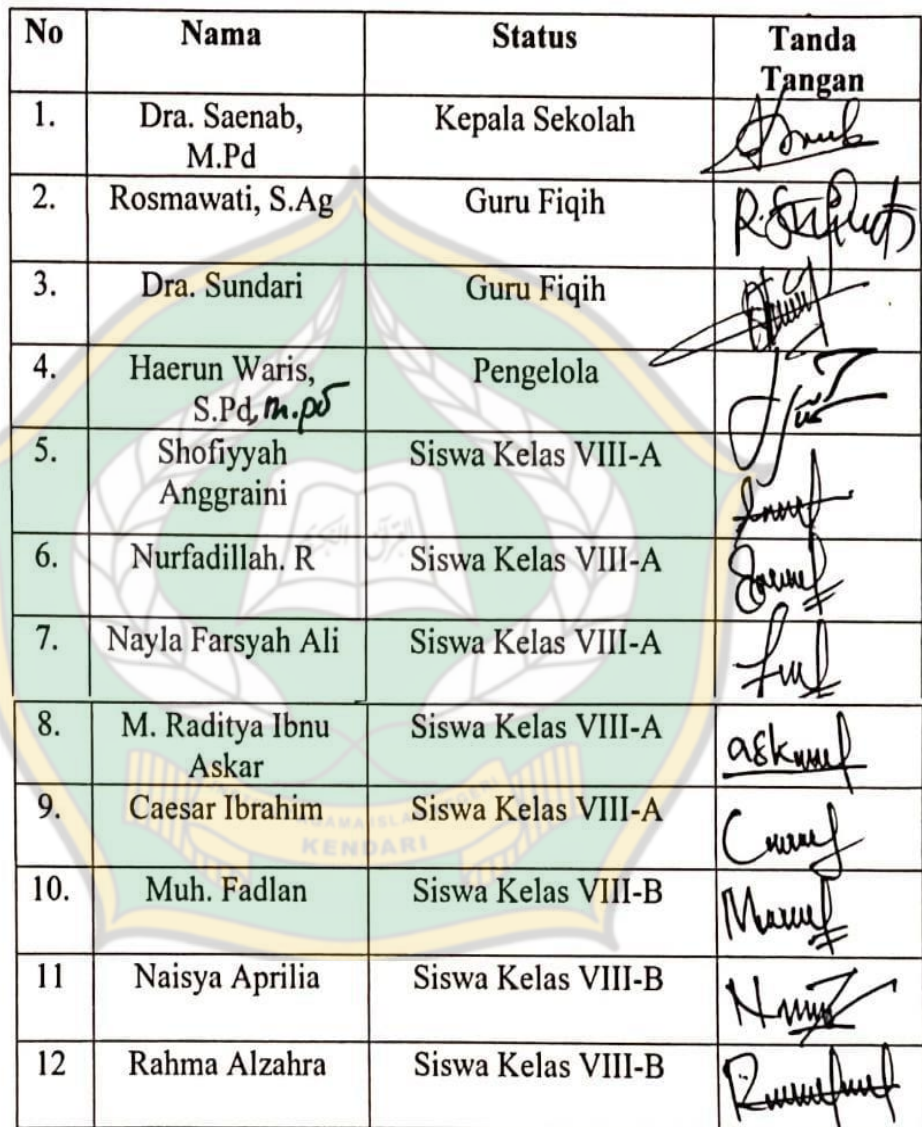 No Nama Status Tanda
Tangan
1. Dra. Saenab, Kepala Sekolah
M.Pd
2. Rosmawati, S.Ag Guru Fiqih
3. Dra. Sundari Guru Fiqih
4. Haerun Waris, Pengelola
S.Pd, M.Pd
5. Shofiyyah Siswa Kelas VIII-A
Anggraini
6. Nurfadillah. R Siswa Kelas VIII-A
7. Nayla Farsyah Ali Siswa Kelas VIII-A
8. M. Raditya Ibnu Siswa Kelas VIII-A
Askar
9. Caesar Ibrahim Siswa Kelas VIII-A
KENDARI
10. Muh. Fadlan Siswa Kelas VIII-B
11 Naisya Aprilia Siswa Kelas VIII-B
12 Rahma Alzahra Siswa Kelas VIII-B